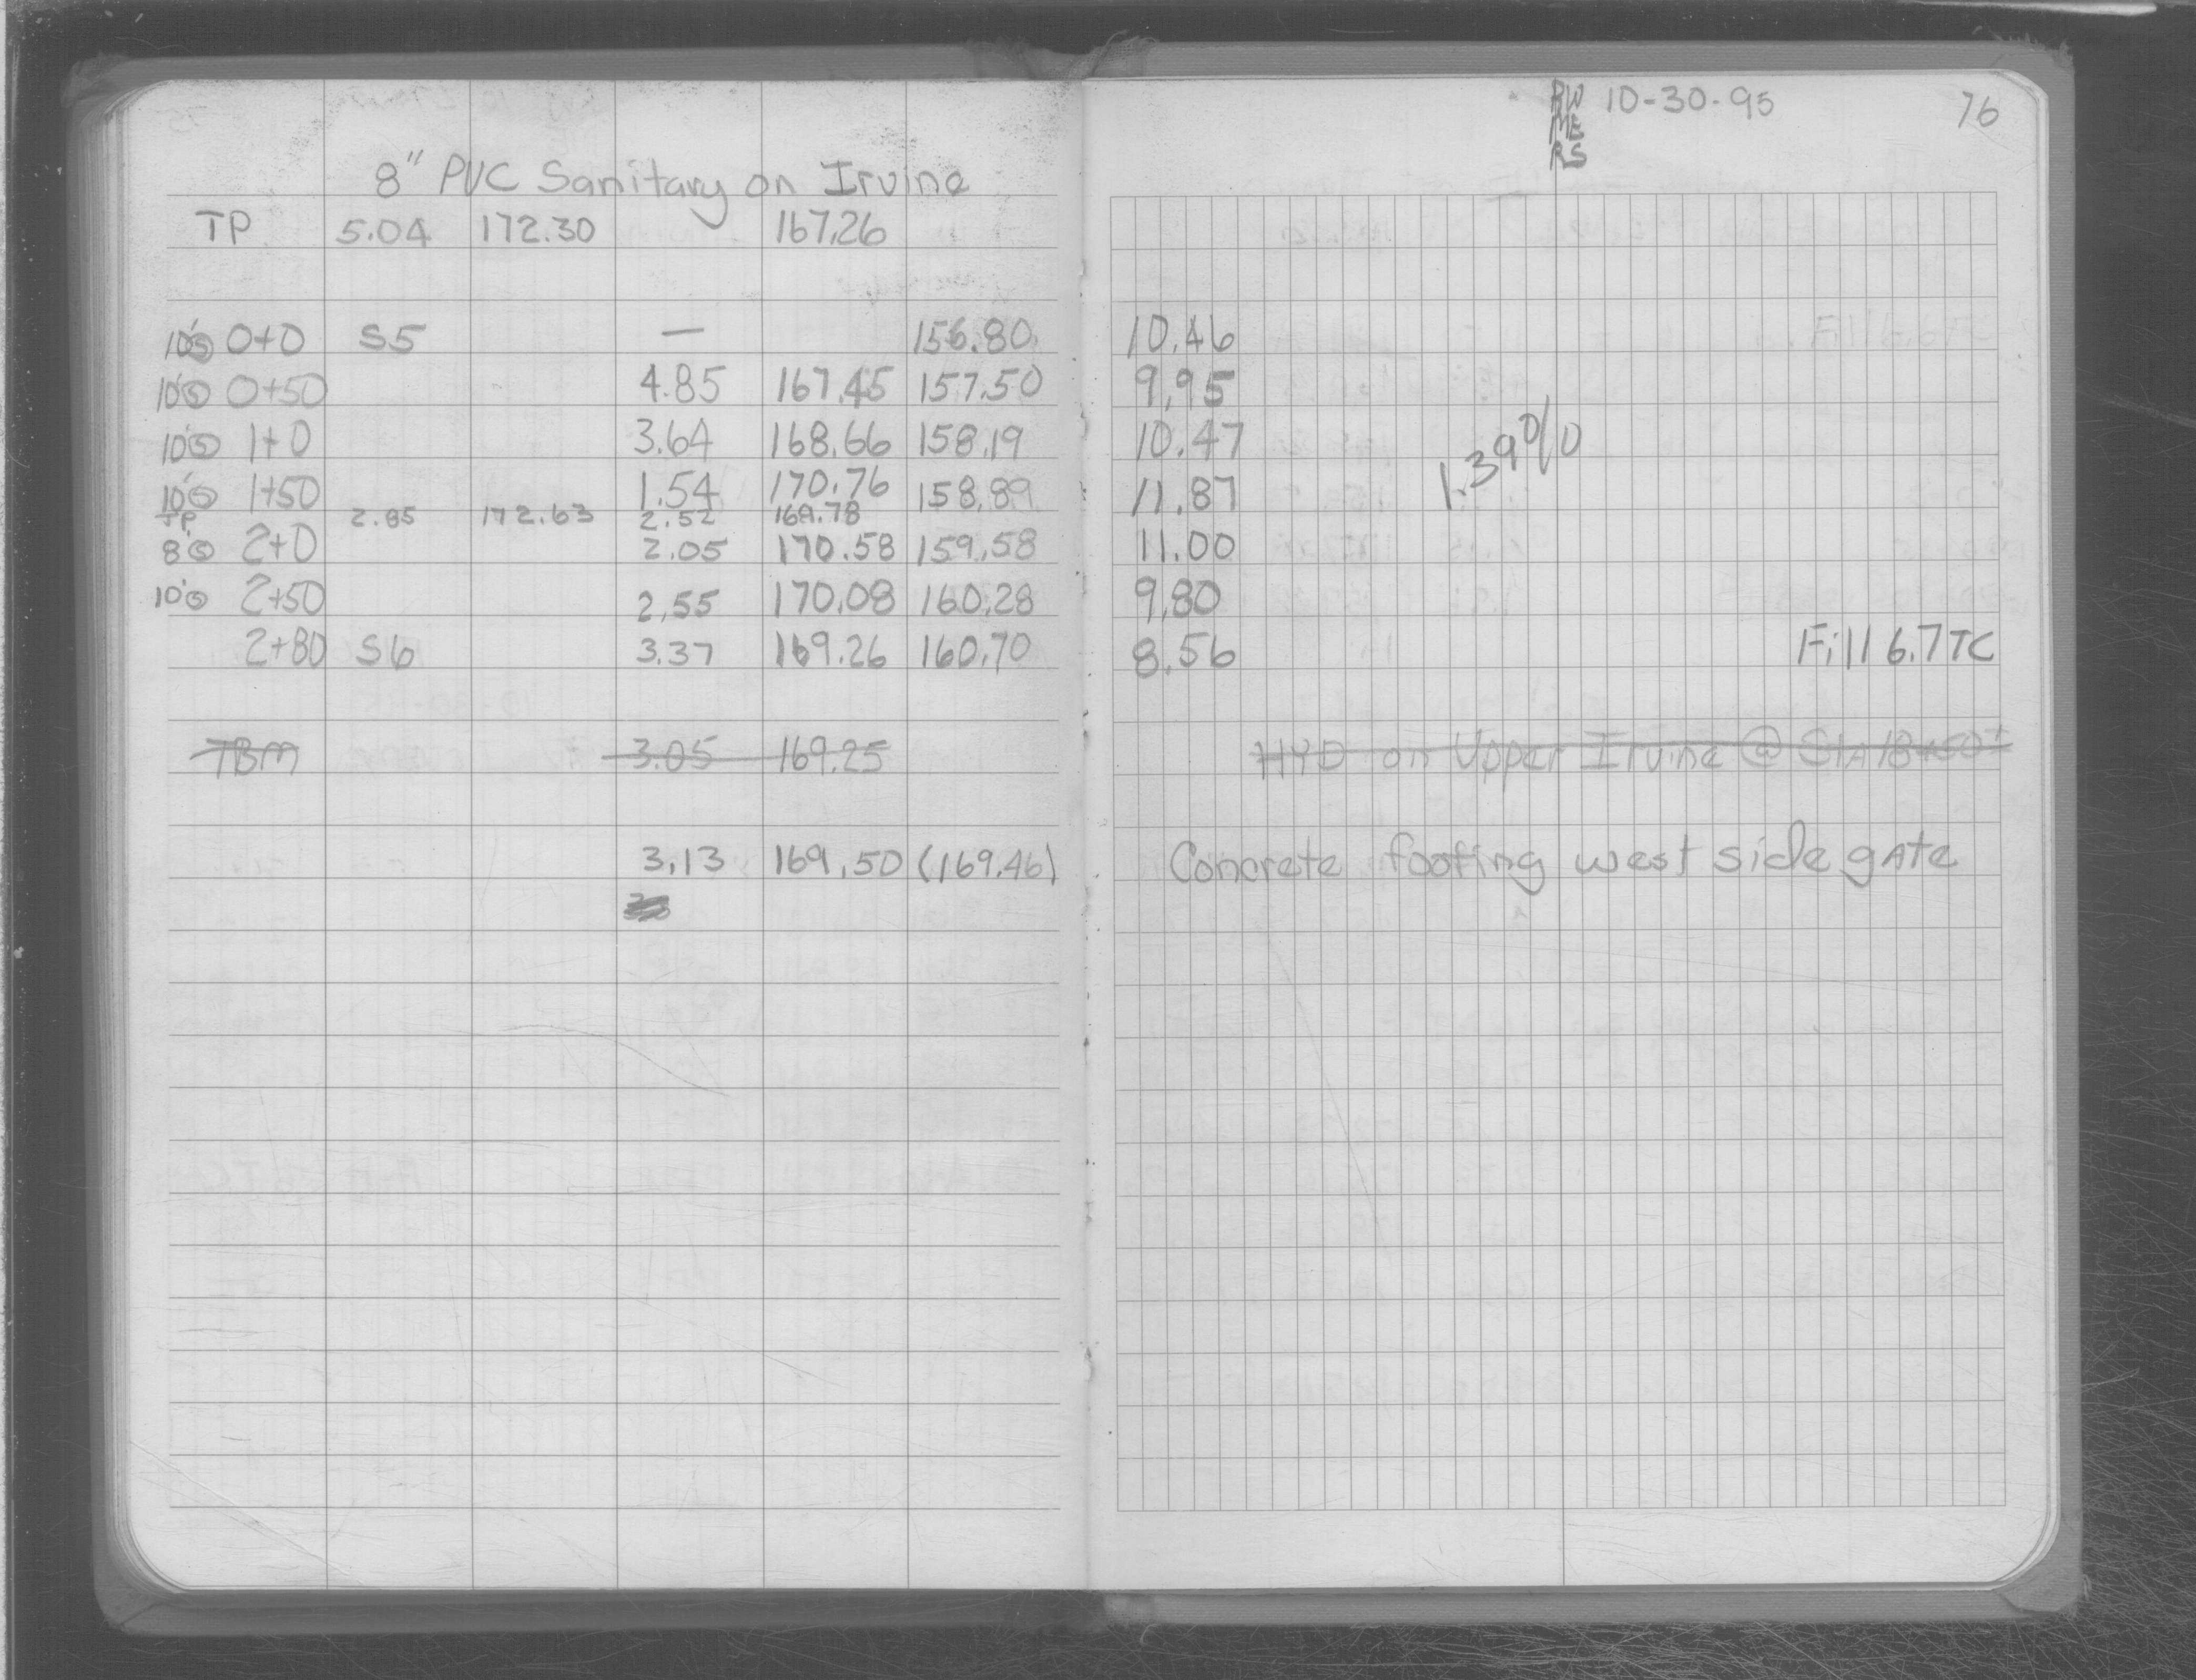 8" PVC Sanitary on Irvine
TP 5.04 172.30 167.26
10'Ⓢ 0+0 S5 — 156.80
10'Ⓢ 0+50 4.85 167.45 157.50
10'Ⓢ 1+0 3.64 168.66 158.19
10'Ⓢ 1+50 1.54 170.76 158.89
TP 2.85 172.63 2.52 169.78
8'Ⓢ 2+0 2.05 170.58 159.58
10'Ⓢ 2+50 2.55 170.08 160.28
2+80 S6 3.37 169.26 160.70
TBM 3.05 169.25
3.13 169.50 (169.46)
RW 10-30-95 76
ME
RS
10.46
9.95
10.47
11.87
1.39%
11.00
9.80
8.56 Fill 6.7 TC
HYD on Upper Irvine @ STA 18+50±
Concrete footing west side gate